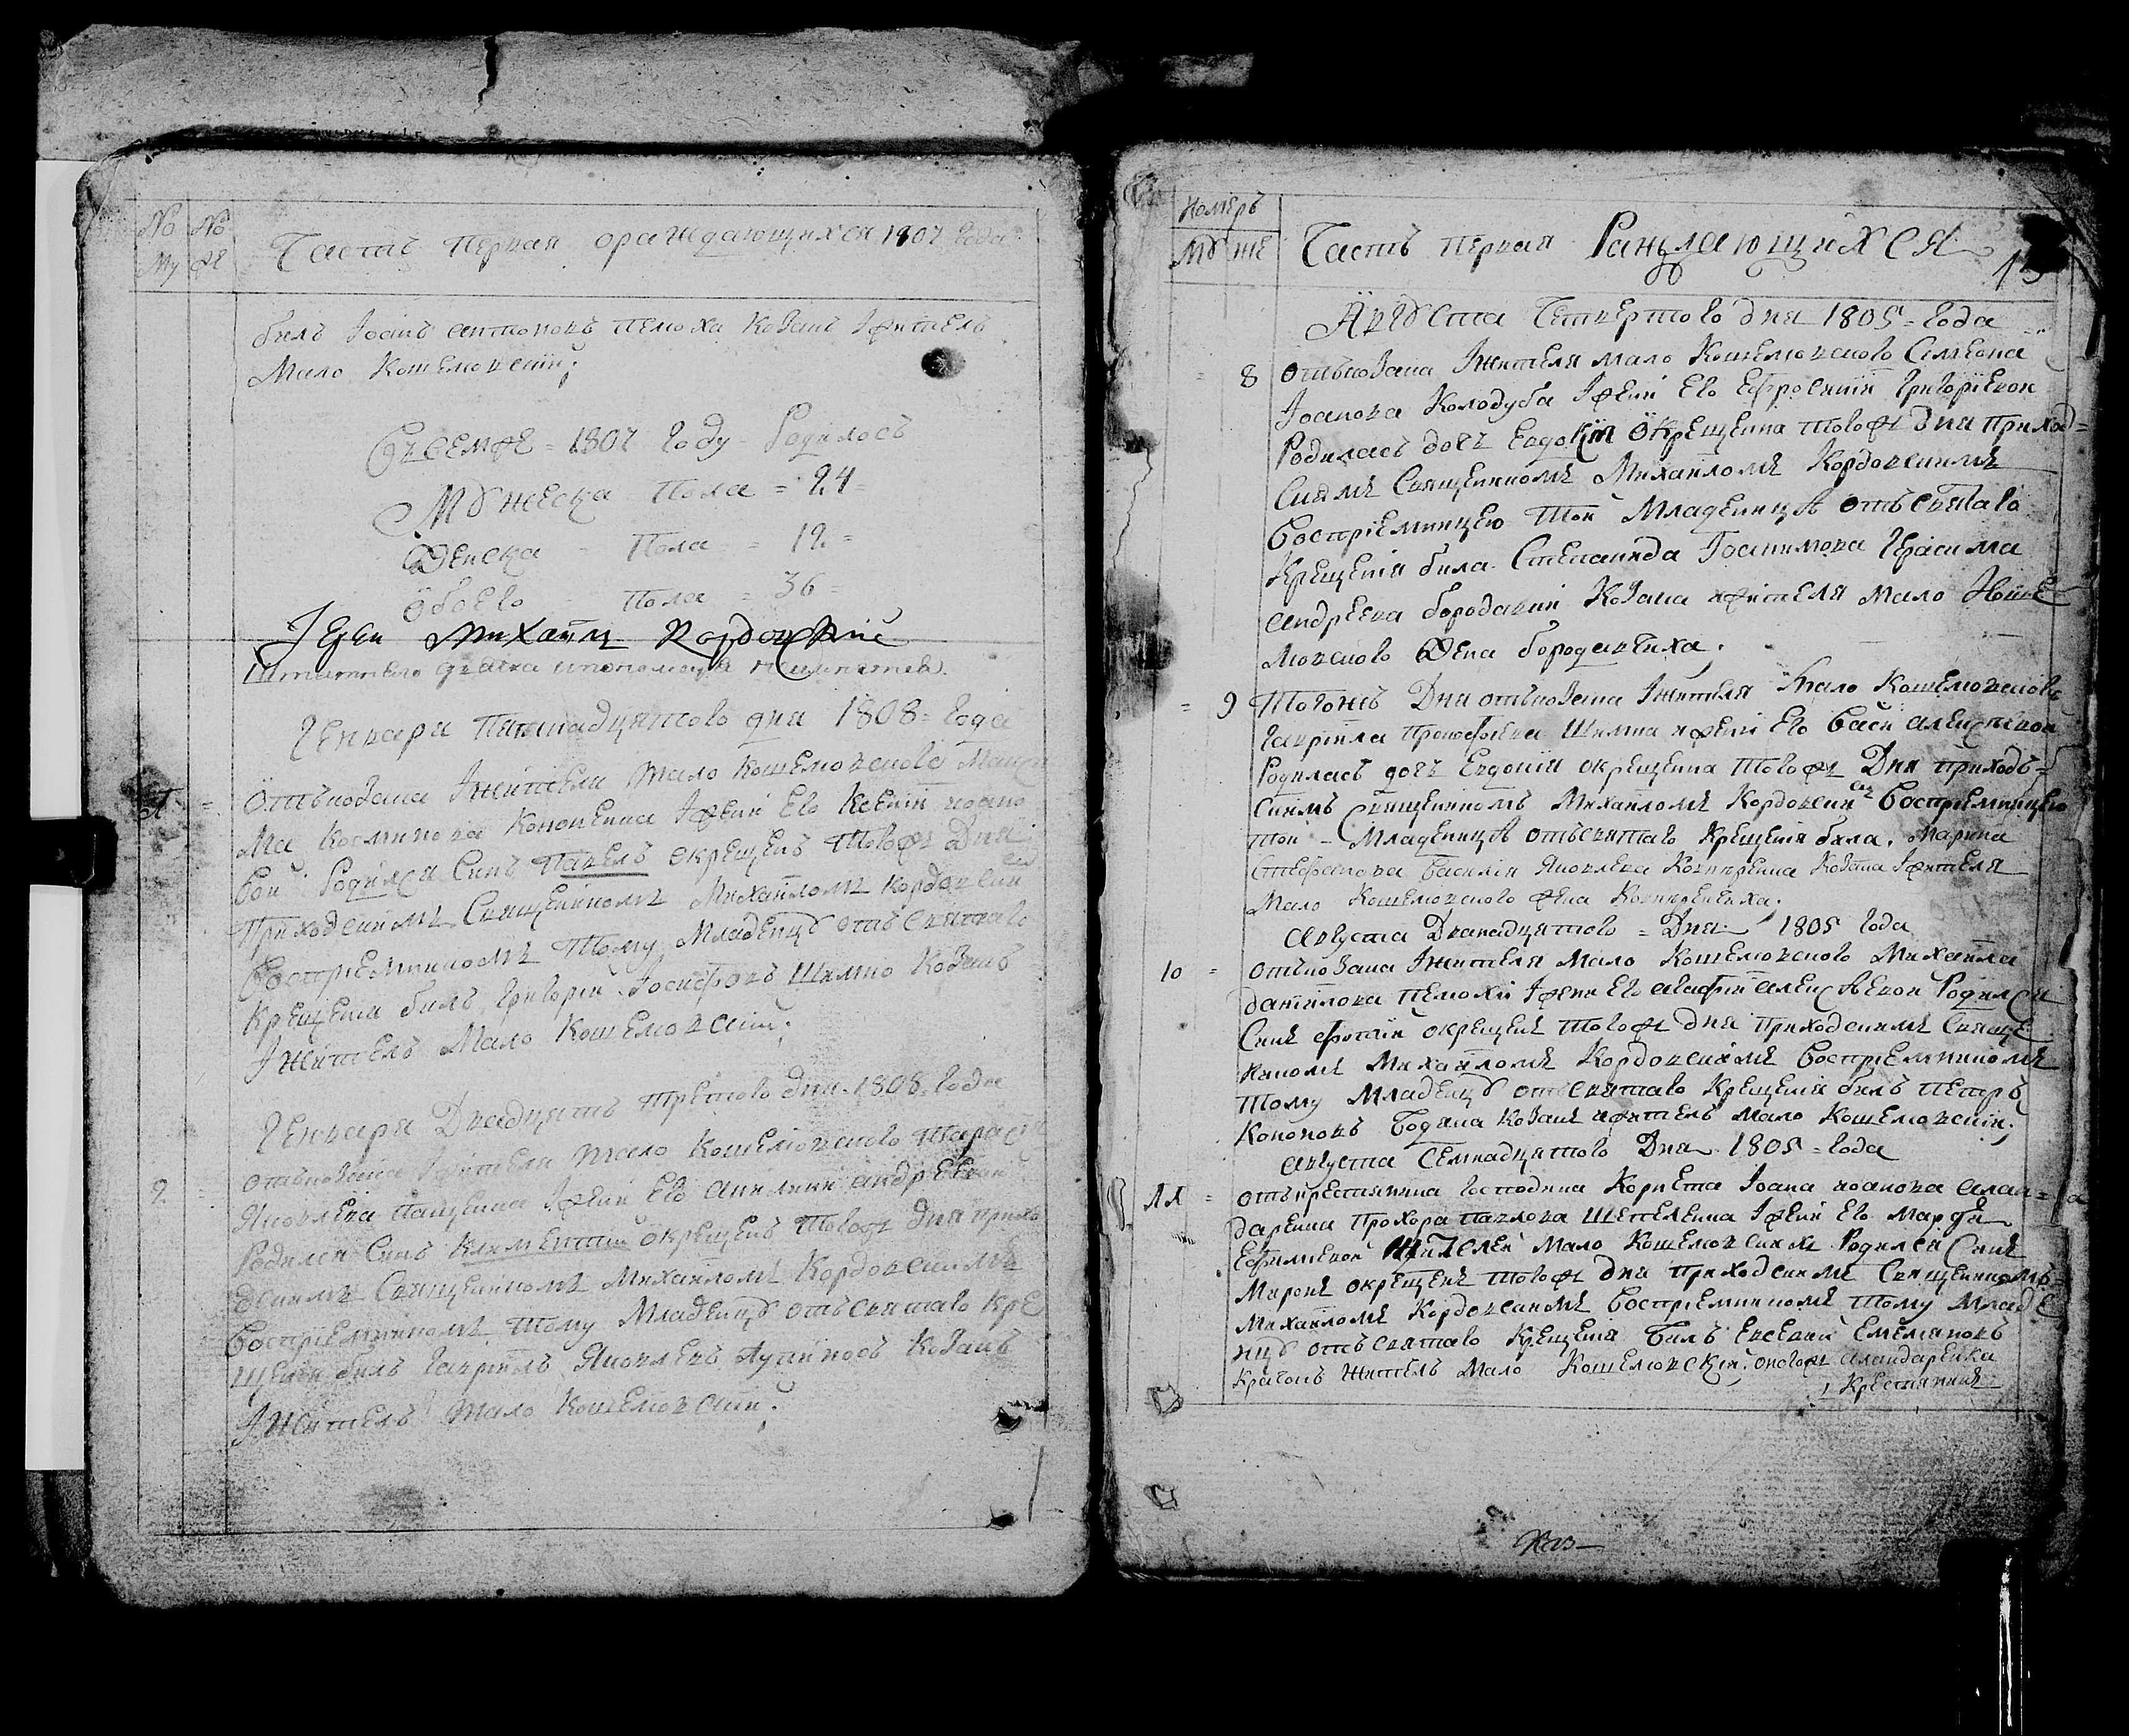 No No
Му же
Часть первая ораждающихся 1807 года
билъ Іоанъ антоновъ пемоха козакъ Iжитель
Мало Кошелювскій;
Въсемже = 1807 году Родилось
Мужеска Пола = 24
Женска Пола = 12 =
Обоего Пола = 36 =
Іерей Михаилъ Кордовскій
Штатнаго дячка ипономаря неимѣется
Генваря Пятнадцятого дня 1808 = года
1 = Отъкозака Iжителя Мало Кошелювского
Ма Косминова Кононенка Iжени Его Ксении иоано
вой Родился Синъ Павелъ окрещенъ Тогожъ Дня
Приходскимъ Священникомъ Михаиломъ Кордовским
Воспріемникомъ Тому Младенцу отъ Святаго
Крещения билъ Григорій Іосифовъ Шимко Козакъ
Iжитель Мало Кошелювскій;
Генваря Двадцять третого дня 1808 года
2 = отъкозака Iжителя Мало Кошелювского Тараса
Яковлева Пащенка Iжени Его Акилини андреевой
Родился Синъ Климентий окрещенъ Тогожъ дня прихо
дскимъ Священникомъ Михаиломъ Кордовскимъ
Воспріемникомъ Тому Младенцу отъ Святаго Кре
щения билъ Гавриилъ Яковлевъ Козакъ
Iжитель Мало Кошелювскій;
Номеръ
Му же
Часть первая Раждающихся
15
Августа Четвертого дня 1805 = года
8 отъкозака Iжителя мало Кошелювского Симеона
Іоанова Колодуба Iжени Его Ефросиніи Григоріевои
Родилась дочъ Евдокія Окрещенна Тогожъ Дня Приход=
Скимъ Священникомъ Михаиломъ Кордовскимъ
Воспріемницею Той Младеницѣ отъ Святаго
Крещенія била Степанида Іоакимова Герасима
андреева бородавки Козака ижителя мало Коше
Лювского Жена бородавчиха;
= 9 Тогожъ Дня отъкозака Iжителя Мало Кошелювского
Гавріила Прокофіева Шимка ижени Его Васи алексѣевой
Родилась дочъ Евдокія окрещенна Тогожъ Дня приход=
Скимъ Священникомъ Михаиломъ Кордовским Воспріемницею
Той - Младеницѣ отъ Святаго Крещенія била. Марина
Стефанова Василія Яковлева Козака Iжителя
Мало Кошелювского жена
Августа Дванадцятого = Дня 1805 года
10 = отъкозака Iжителя Мало Кошелювского Михаила
даніилова Пемохи Iжени Его агафіи алексѣевои Родился
Синъ Фотій окрещенъ Тогожъ дня приходскимъ Свяще
никомъ Михаиломъ Кордовскимъ Воспріемникомъ
Тому Младенцу отъ Святаго Крещенія билъ Петръ
Кононовъ Бодяка козакъ ижитель мало Кошелювскій;
августа Семнадцятого Дня 1805 = года
11 = отъкрестянина Господина Корнета Іоана иоанова
Прохора Павлова Шепеленка Iжени Его Марфи
Ефимевой Жителей Мало Кошелювских Родился Синъ
Миронъ окрещенъ Тогожъ дня Приходскимъ Священникомъ=
Михаиломъ Кордовскимъ Воспріемникомъ Тому Младе
нцу отъ Святаго Крещенія Билъ Евсевий Емеляновъ
Житель Мало Кошелювскій; оногожъ
Крестянинъ